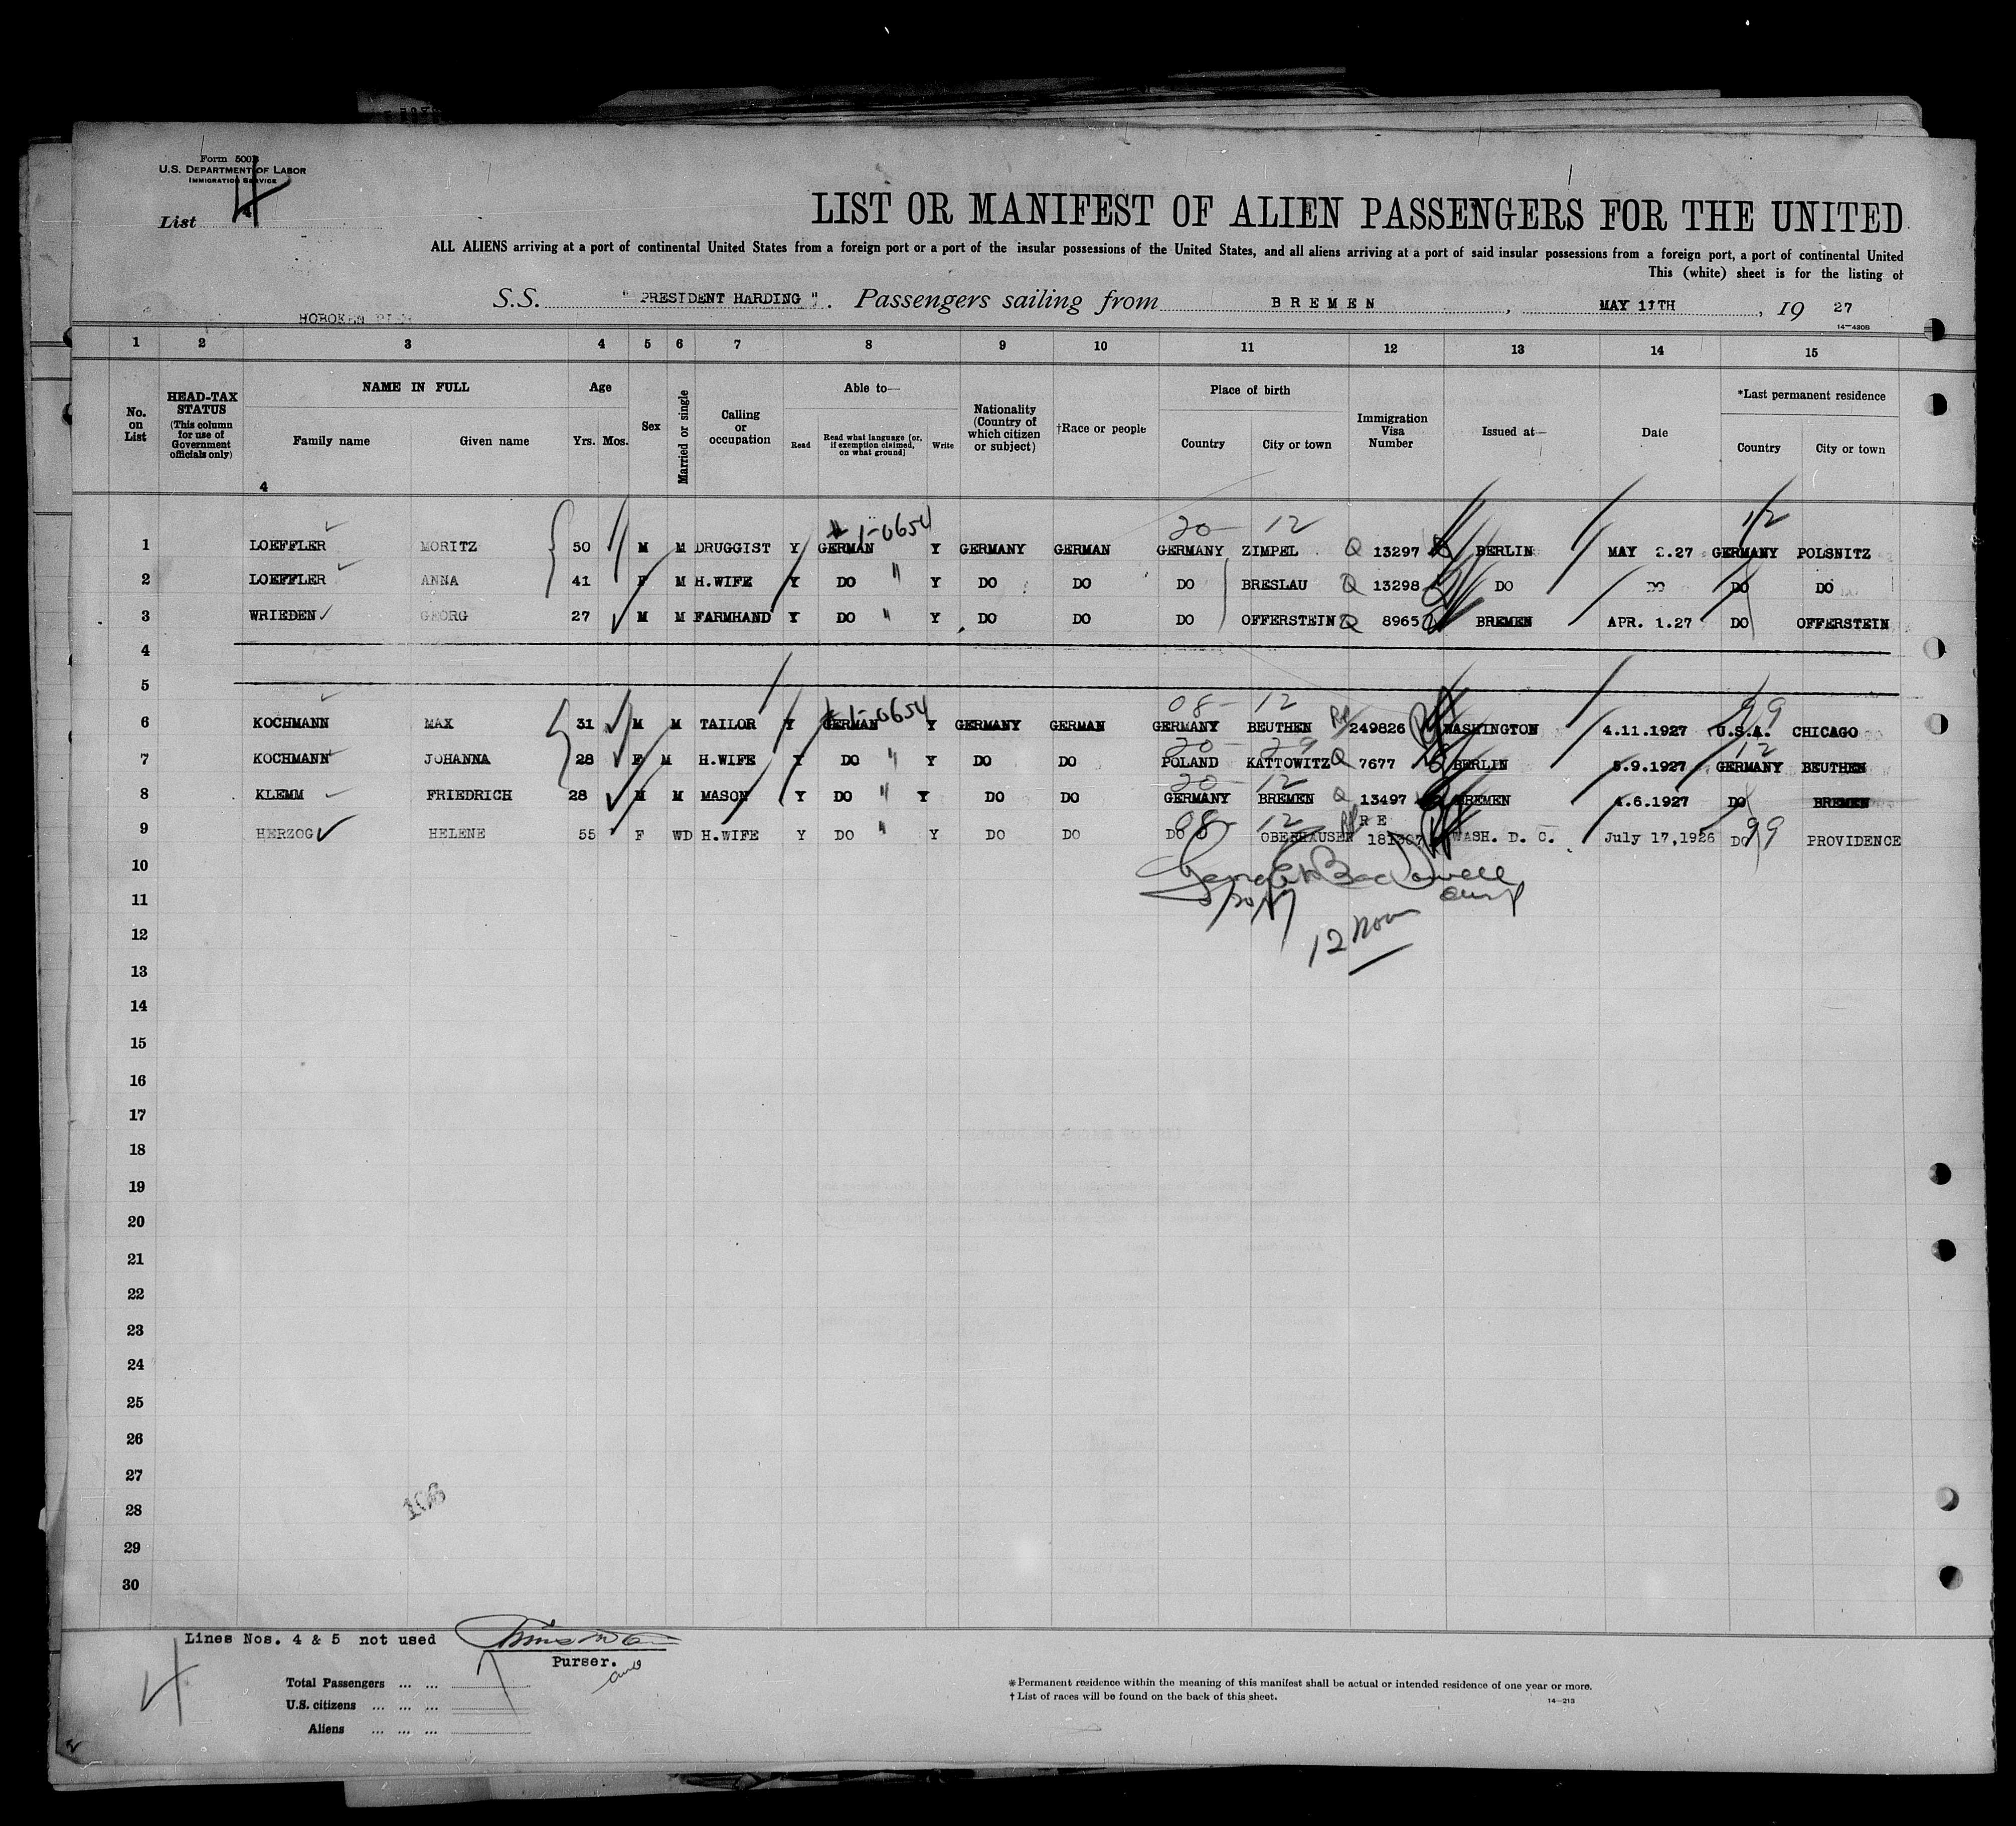 Form 500B
U.S. DEPARTMENT OF LABOR
IMMIGRATION SERVICE
List 4
LIST OR MANIFEST OF ALIEN PASSENGERS FOR THE UNITED
ALL ALIENS arriving at a port of continental United States from a foreign port or a port of the insular possessions of the United States, and all aliens arriving at a port of said insular possessions from a foreign port, a port of continental United
This (white) sheet is for the listing of
S.S. "PRESIDENT HARDING". Passengers sailing from BREMEN, MAY 11TH, 19 27
HOBOKEN PIER
14—430B
1 2 3 4 5 6 7 8 9 10 11 12 13 14 15
No. on List
HEAD-TAX STATUS (This column for use of Government officials only)
NAME IN FULL Family name Given name
Age Yrs. Mos.
Sex
Married or single
Calling or occupation
Able to— Read Read what language [or, if exemption claimed, on what ground] Write
Nationality (Country of which citizen or subject)
†Race or people
Place of birth Country City or town
Immigration Visa Number
Issued at—
Date
*Last permanent residence Country City or town
4
1-0654 20- 12 12
1 LOEFFLER MORITZ 50 M M DRUGGIST Y GERMAN Y GERMANY GERMAN GERMANY ZIMPEL Q 13297 BERLIN MAY 2.27 GERMANY POLSNITZ
2 LOEFFLER ANNA 41 F M H.WIFE Y DO " Y DO DO DO BRESLAU Q 13298 DO DO DO DO
3 WRIEDEN GEORG 27 M M FARMHAND Y DO " Y DO DO DO OFFERSTEIN Q 8965 BREMEN APR. 1.27 DO OFFERSTEIN
4
5
1-0654 08- 12 99
6 KOCHMANN MAX 31 M M TAILOR Y GERMAN Y GERMANY GERMAN GERMANY BEUTHEN RP 249826 WASHINGTON 4.11.1927 U.S.A. CHICAGO
20- 29 12
7 KOCHMANN JOHANNA 28 F M H.WIFE Y DO " Y DO DO POLAND KATTOWITZ Q 7677 BERLIN 5.9.1927 GERMANY BEUTHEN
20- 12
8 KLEMM FRIEDRICH 28 M M MASON Y DO " Y DO DO GERMANY BREMEN Q 13497 BREMEN 4.6.1927 DO BREMEN
08- 12 RP RE 99
9 HERZOG HELENE 55 F WD H.WIFE Y DO " Y DO DO DO OBERHAUSEN 181307 WASH. D. C. July 17,1926 DO PROVIDENCE
10
11
12
12 Noon
13
14
15
16
17
18
19
20
21
22
23
24
25
26
27
28
29
30
106
Lines Nos. 4 & 5 not used
Purser.
4
Total Passengers ... ...
U.S. citizens ... ... ...
Aliens ... ... ...
* Permanent residence within the meaning of this manifest shall be actual or intended residence of one year or more.
† List of races will be found on the back of this sheet.
14—213